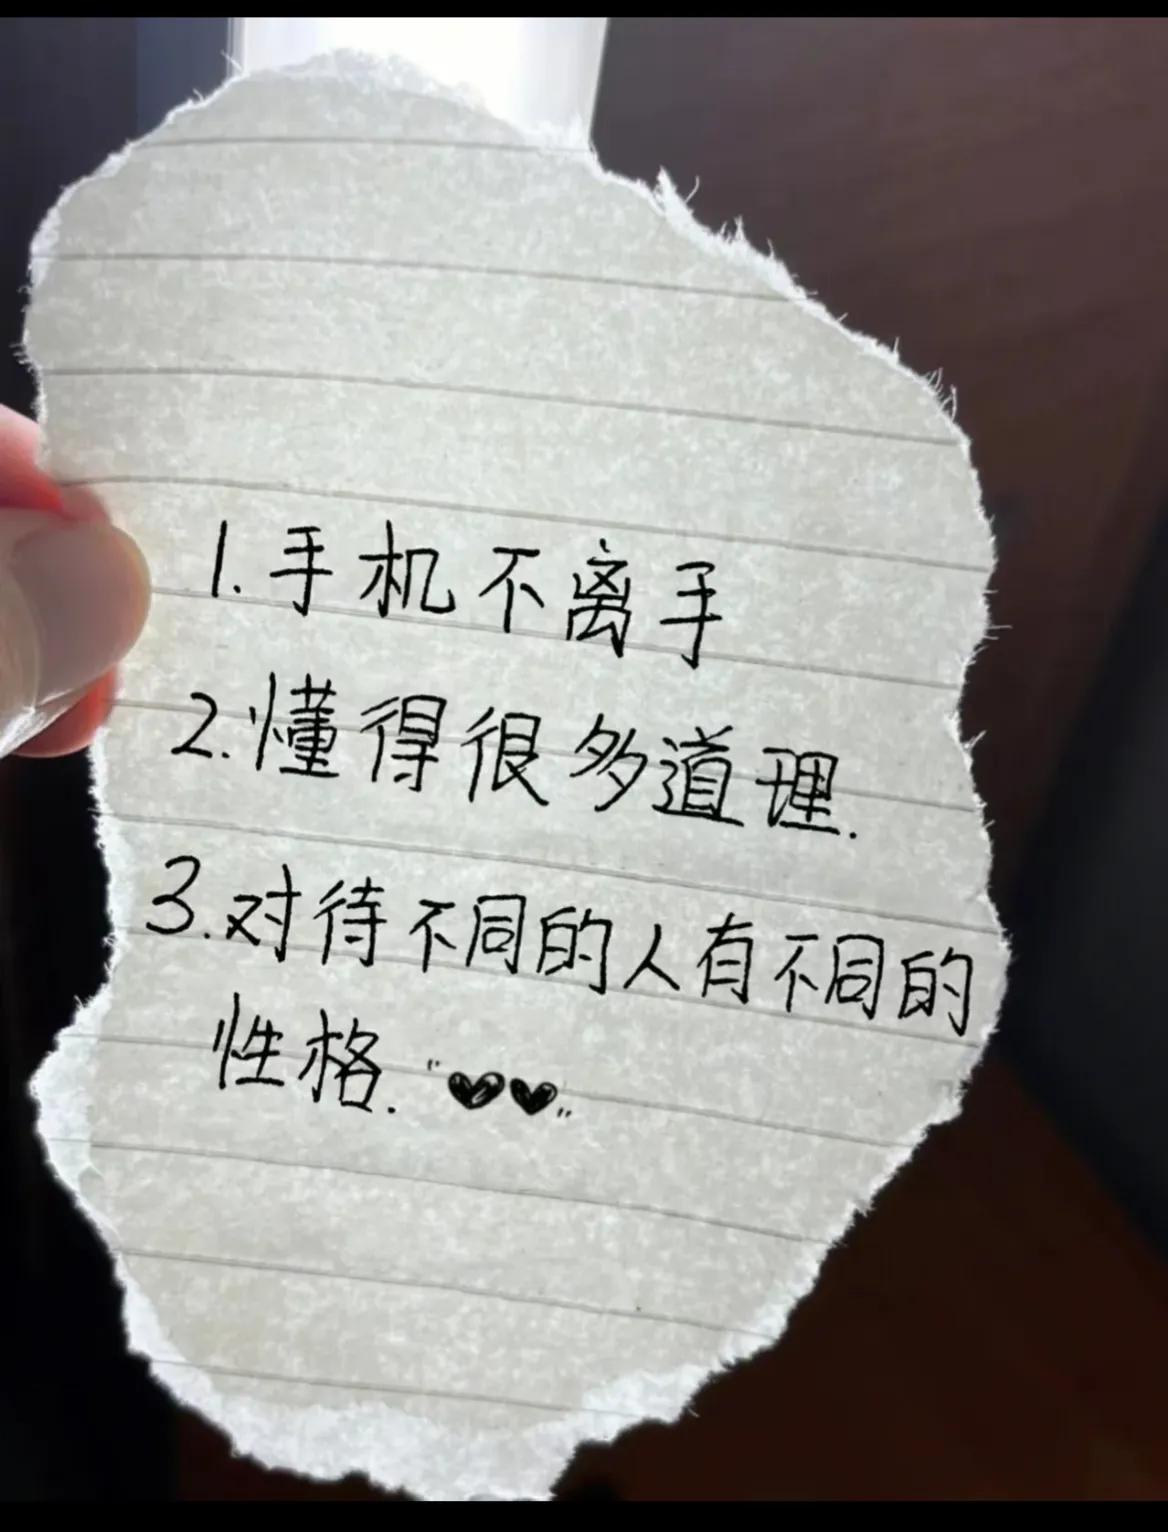 1.手机不离手
2.懂得很多道理.
3.对待不同的人有不同的
性格.